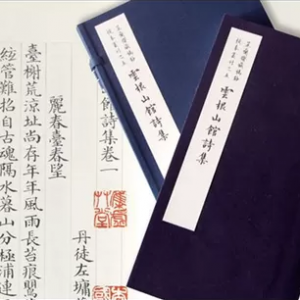 雲根山館詩集
雲根山館詩集
館詩集卷一
丹徒左墉
麗春臺春望
臺榭荒涼址尚存年年風雨長苔痕
難招自古魂隔水暮山分極浦連